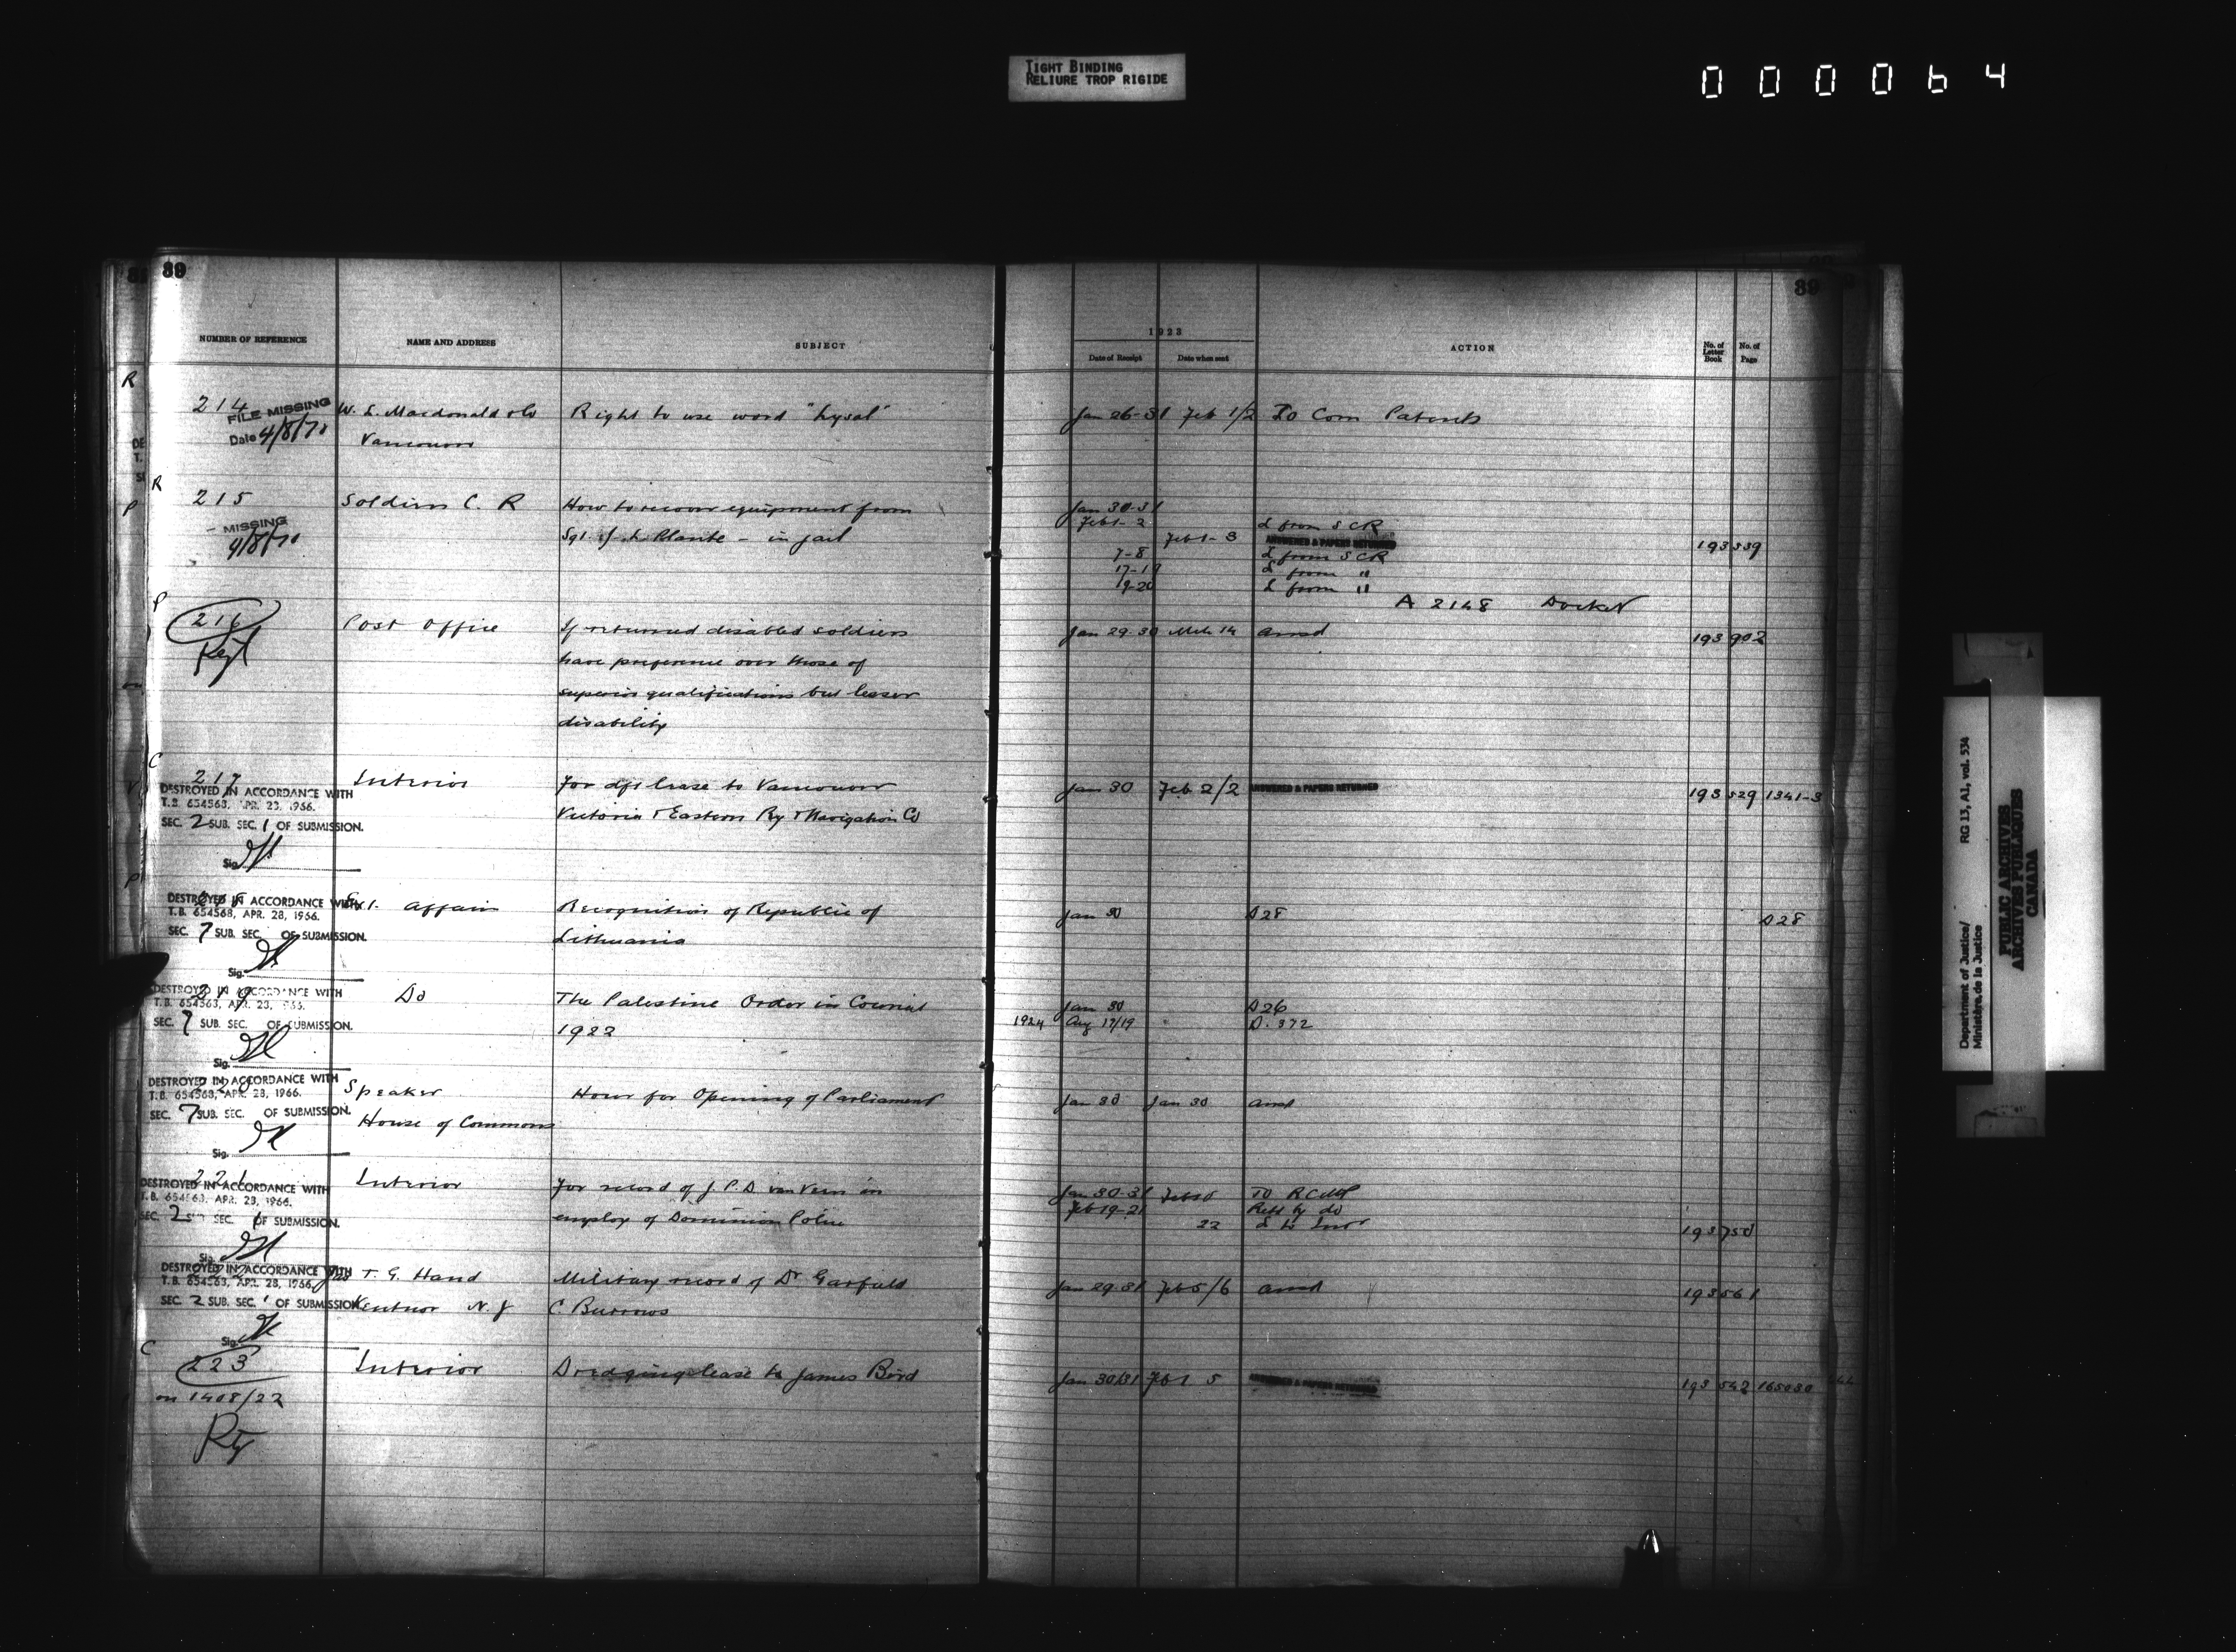 TIGHT BINDING
RELIURE TROP RIGIDE
000064
39
NUMBER OF REFERENCE NAME AND ADDRESS SUBJECT
1923
Date of Receipt Date when sent ACTION No. of Letter Book No. of Page
39
R
214 W. L. Macdonald Right to use word "Lysol" Jan 26-31 Feb 1/2 To Com Patents
FILE MISSING
Date 4/8/71
Vancouver
R
215 Soldiers C. R How to recover equipment from Jan 30-31
Feb 1-2 L from SCR
MISSING
4/8/71
Sgt. J. L. Plante - in jail Feb 1-3 ANSWERED & PAPERS RETURNED 193 539
7-8 L from SCR
17-19 L from "
19-20 L from "
A 2148 Docket
P
216 Post Office If returned disabled soldiers Jan 29-30 Mch 14 ansd 193 902
have preference over those of
superior qualifications but lesser
disability
C
217 Interior For dft lease to Vancouver Jan 30 Feb 2/2 ANSWERED & PAPERS RETURNED 193 529 1341-3
Victoria & Eastern Ry & Navigation Co
DESTROYED IN ACCORDANCE WITH
T.B. 654563, APR. 23, 1966.
SEC. 2 SUB. SEC. 1 OF SUBMISSION.
Sig.
Ext. Affairs Recognition of Republic of Jan 30 D28 D28
Lithuania
DESTROYED IN ACCORDANCE WITH
T.B. 654568, APR. 28, 1966.
SEC. 7 SUB. SEC. OF SUBMISSION.
Sig.
219 Do The Palestine Order in Council Jan 30 D26
1922 1924 Aug 17/19 D. 372
DESTROYED IN ACCORDANCE WITH
T.B. 654563, APR. 23, 1966.
SEC. 7 SUB. SEC. OF SUBMISSION.
Sig.
220 Speaker Hour for Opening of Parliament Jan 30 Jan 30 ansd
House of Commons
DESTROYED IN ACCORDANCE WITH
T.B. 654563, APR. 28, 1966.
SEC. 7 SUB. SEC. OF SUBMISSION.
Sig.
221 Interior For record of J. P. D. van Veen in Jan 30-31 To RCMP
Feb 19-21 Retd by do
employ of Dominion Police 22 L to Intr 193 750
DESTROYED IN ACCORDANCE WITH
T.B. 654563, APR. 23, 1966.
SEC. 2 SUB SEC. 1 OF SUBMISSION.
Sig.
222 T. G. Hand Military record of Dr Garfield Jan 29-31 Feb 5/6 ansd 193 561
Ventnor N. J C. Burrows
DESTROYED IN ACCORDANCE WITH
T.B. 654563, APR. 28, 1966.
SEC. 2 SUB. SEC. 1 OF SUBMISSION
Sig.
C
223 Interior Dredging lease to James Bird Jan 30/31 Feb 5 ANSWERED & PAPERS RETURNED 193 542 165030
on 1408/22
Department of Justice/
Ministère de la Justice
RG 13, A1, vol. 534
PUBLIC ARCHIVES
ARCHIVES PUBLIQUES
CANADA